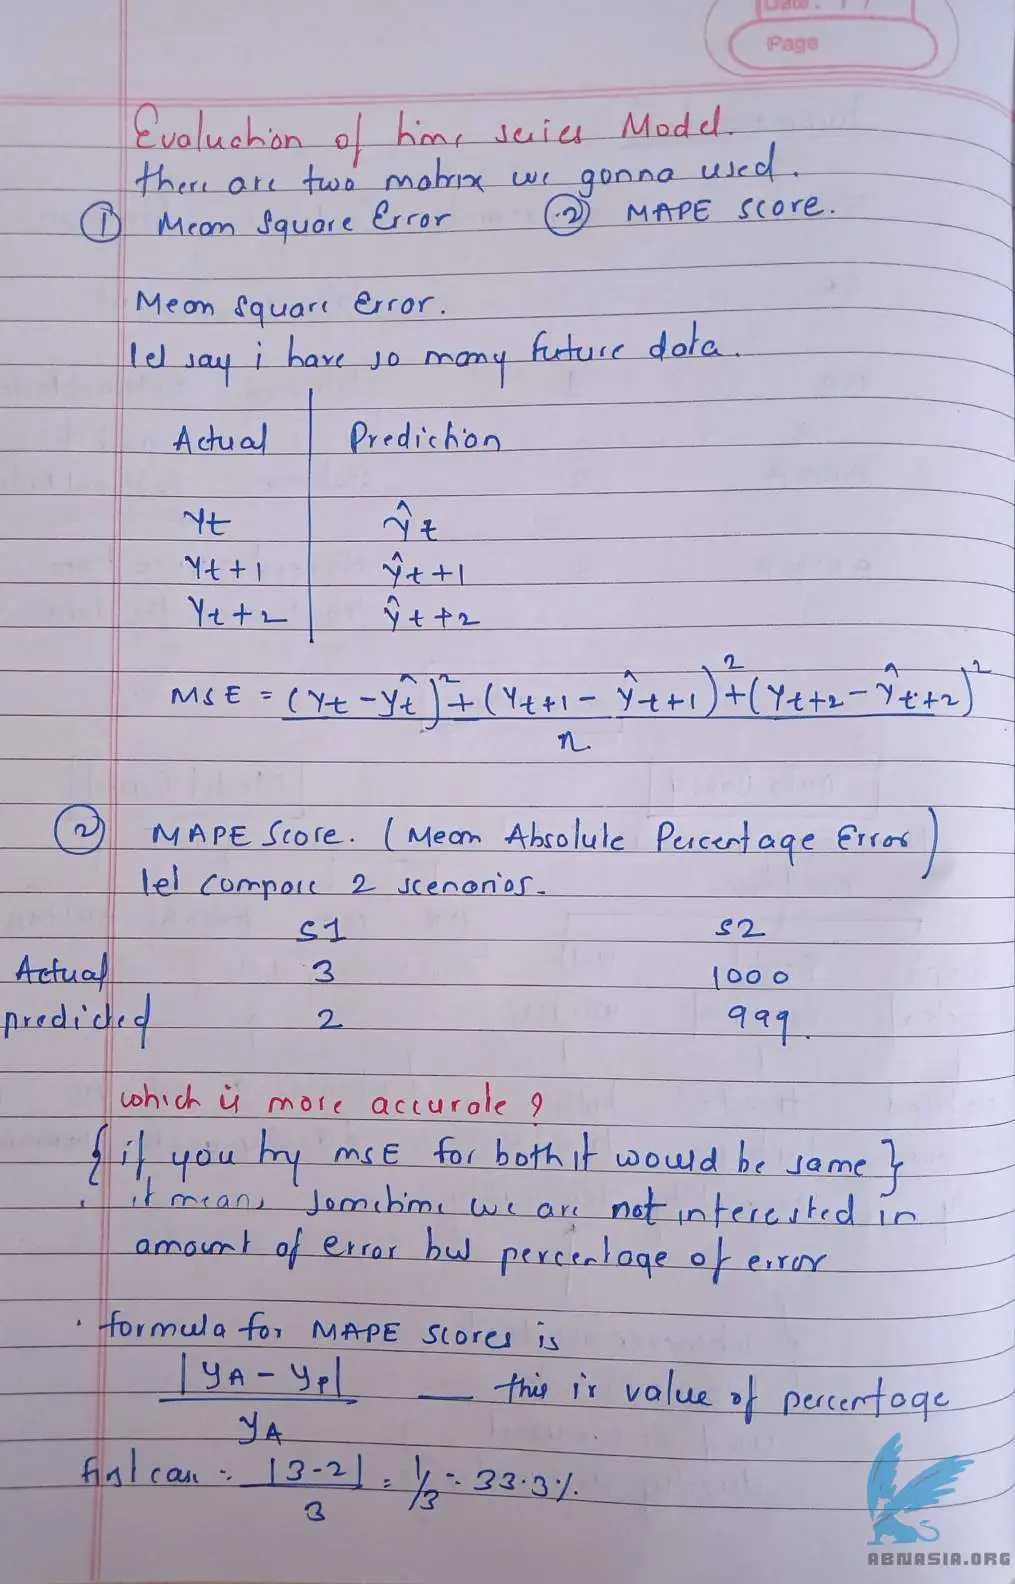 Date :
Page
Evaluation of time series Model.
there are two matrix we gonna used.
① Mean Square Error ② MAPE score.
Mean Square Error.
let say i have so many future data.
Actual Prediction
yt ŷt
yt+1 ŷt+1
yt+2 ŷt+2
MSE = (yt - ŷt)² + (yt+1 - ŷt+1)² + (yt+2 - ŷt+2)²
n
② MAPE Score. (Mean Absolute Percentage Error)
let compare 2 scenarios.
S1 S2
Actual 3 1000
predicted 2 999.
which is more accurate ?
{ if you try MSE for both it would be same }
it means sometime we are not interested in
amount of error but percentage of error
• formula for MAPE scores is
|yA - yP| — this is value of percentage
yA
first case = |3-2| = 1/3 = 33.3%.
3
ABNASIA.ORG